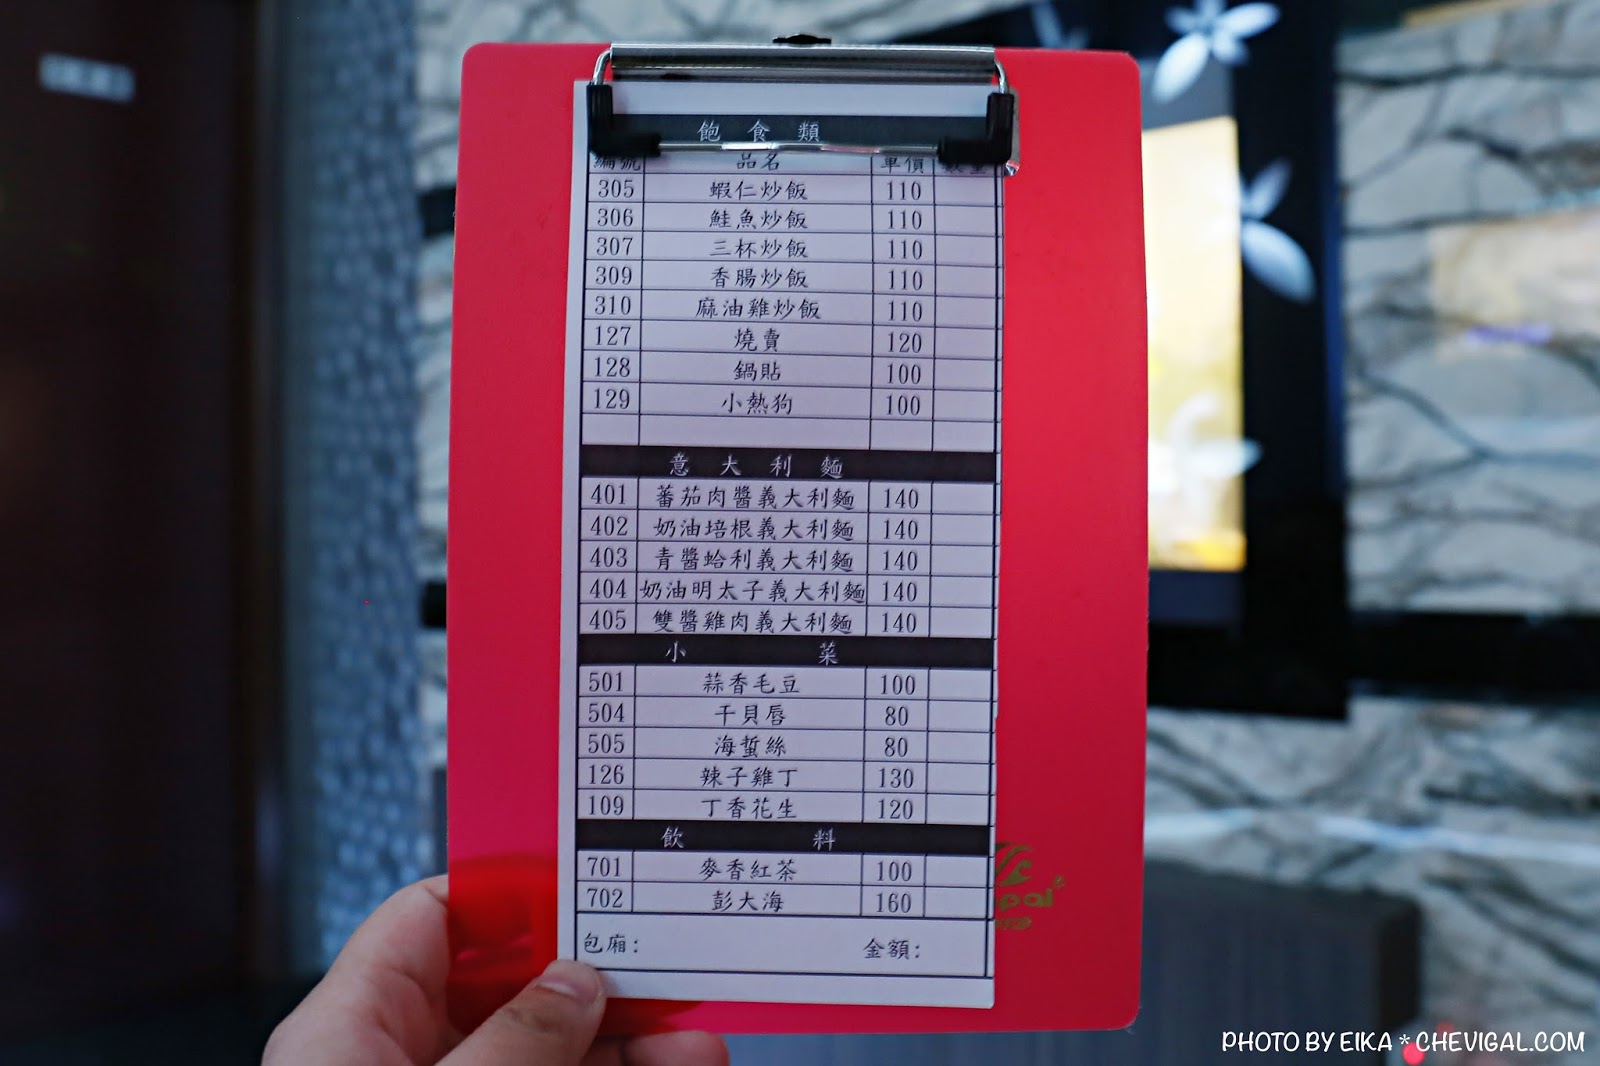 飽食類
編號 品名 單價 數量
305 蝦仁炒飯 110
306 鮭魚炒飯 110
307 三杯炒飯 110
309 香腸炒飯 110
310 麻油雞炒飯 110
127 燒賣 120
128 鍋貼 100
129 小熱狗 100
意大利麵
401 蕃茄肉醬義大利麵 140
402 奶油培根義大利麵 140
403 青醬蛤利義大利麵 140
404 奶油明太子義大利麵 140
405 雙醬雞肉義大利麵 140
小菜
501 蒜香毛豆 100
504 干貝唇 80
505 海蜇絲 80
126 辣子雞丁 130
109 丁香花生 120
飲料
701 麥香紅茶 100
702 彭大海 160
包廂: 金額:
PHOTO BY EIKA * CHEVIGAL.COM